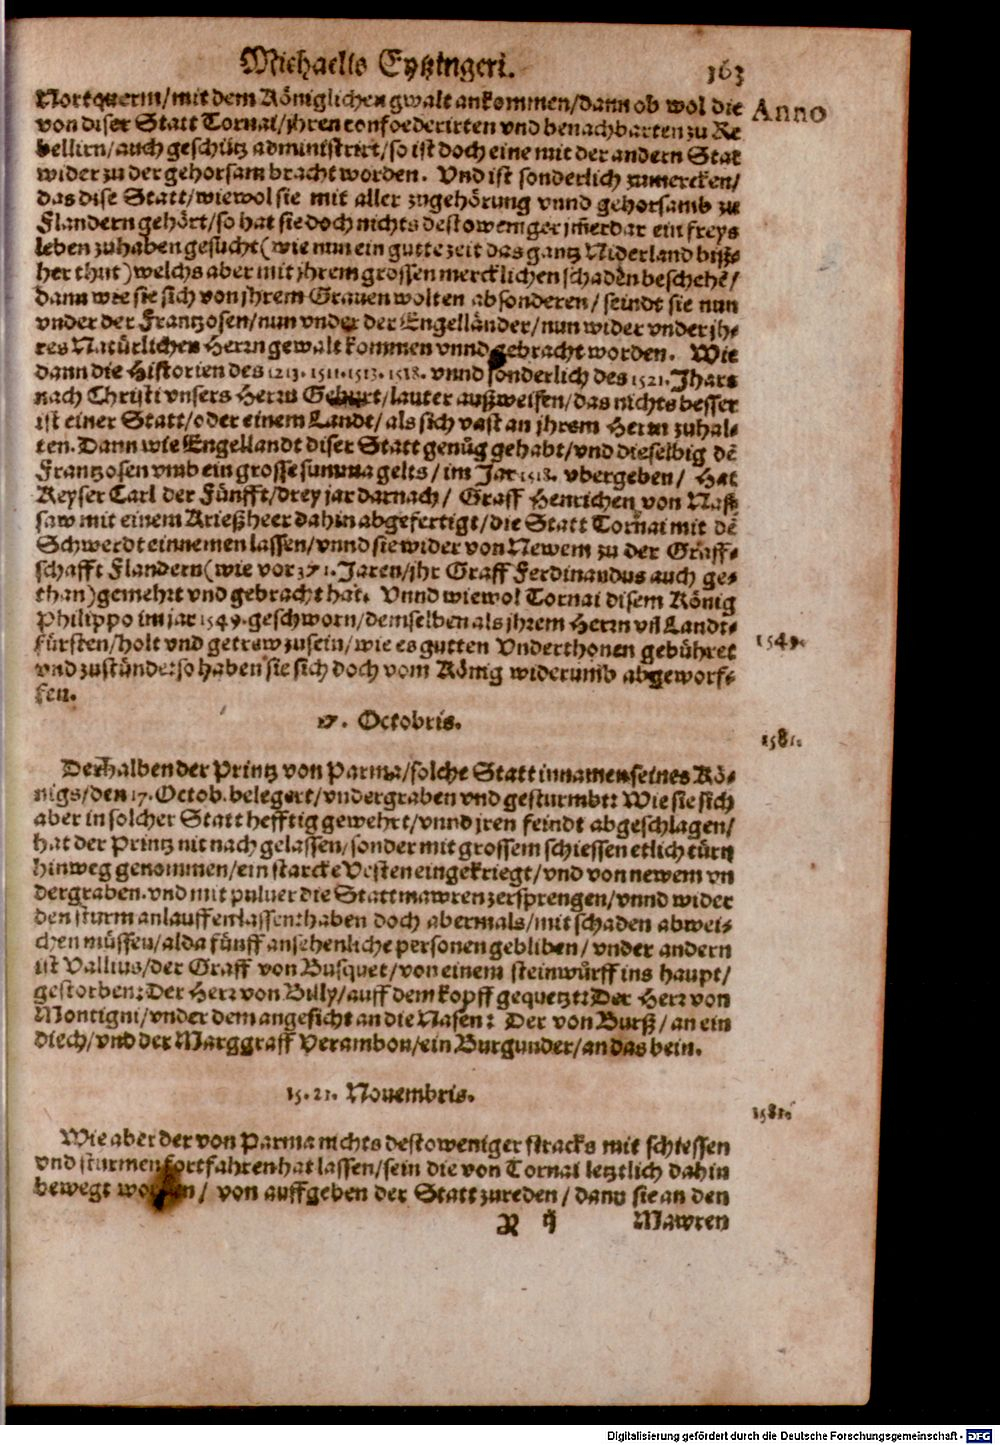 Michaelis Eytzingeri. 363
Anno
Nortquerm/mit dem Königlichen gwalt ankommen/dann ob wol die
von diser Statt Tornai/jhren confoederirten vnd benachbarten zu Re
bellirn/auch geschütz administrirt/so ist doch eine mit der andern Stat
wider zu der gehorsam bracht worden. Vnd ist sonderlich zumercken/
das dise Statt/wiewol sie mit aller zugehörung vnnd gehorsamb zu
Flandern gehört/so hat sie doch nichts destoweniger jm̄erdar ein freys
leben zuhaben gesucht (wie nun ein gutte zeit das gantz Niderland biß-
her thut) welchs aber mit jhrem grossen mercklichen schaden beschehē/
dann wie sie sich von jhrem Grauen wolten absonderen/ seindt sie nun
vnder der Frantzosen/nun vnder der Engelländer/nun wider vnder jh-
res Natürlichen Herrn gewalt kommen vnnd gebracht worden. Wie
dann die Historien des 1213. 1511. 1513. 1518. vnnd sonderlich des 1521. Jhars
nach Christi vnsers Herrn Geburt/lauter außweisen/das nichts besser
ist einer Statt/oder einem Landt/als sich vast an jhrem Herrn zuhal-
ten. Dann wie Engellandt diser Statt genůg gehabt/vnd dieselbig dē
Frantzosen vmb ein grosse summa gelts/ im Jar 1518. vbergeben/ Hat
Keyser Carl der Fünfft/drey jar darnach/ Graff Henrichen von Naß
saw mit einem Krießheer dahin abgefertigt/die Statt Tornai mit dē
Schwerdt einnemen lassen/vnnd sie wider von Newem zu der Graff-
schafft Flandern (wie vor 371. Jaren/jhr Graff Ferdinandus auch ge-
than) gemehrt vnd gebracht hat. Vnnd wiewol Tornai disem König
Philippo im jar 1549. geschworn/demselben als jhrem Herrn vn̄ Landt-
fürsten/holt vnd getrew zusein/wie es gutten Vnderthonen gebühret
1549.
vnd zustünde: so haben sie sich doch vom König widerumb abgeworf-
fen.
17. Octobris.
1581.
Derhalben der Printz von Parma/solche Statt innamen seines Kö-
nigs/den 17. Octob. belegert/vndergraben vnd gesturmbt: Wie sie sich
aber in solcher Statt hefftig gewehrt/vnnd jren feindt abgeschlagen/
hat der Printz nit nach gelassen/sonder mit grossem schiessen etlich türn
hinweg genommen/ein starcke Vesten eingekriegt/vnd von newem vn
dergraben. vnd mit puluer die Stattmawren zersprengen/vnnd wider
den sturm anlauffen lassen: haben doch abermals/mit schaden abwei-
chen müssen/alda fünff ansehenliche personen gebliben/vnder andern
ist Vallius/der Graff von Busquet/von einem steinwürff ins haupt/
gestorben: Der Herr von Billy/auff dem kopff gequetzt: Der Herr von
Montigni/vnder dem angesicht an die Nasen: Der von Burß/an ein
diech/vnd der Marggraff Verambon/ein Burgunder/an das bein.
15. 21. Nouembris.
1581.
Wie aber der von Parma nichts destoweniger stracks mit schiessen
vnd sturmen fortfahren hat lassen/sein die von Tornai letztlich dahin
bewegt worden/ von auffgeben der Statt zureden/dann sie an den
R ij Mawren
Digitalisierung gefördert durch die Deutsche Forschungsgemeinschaft - DFG